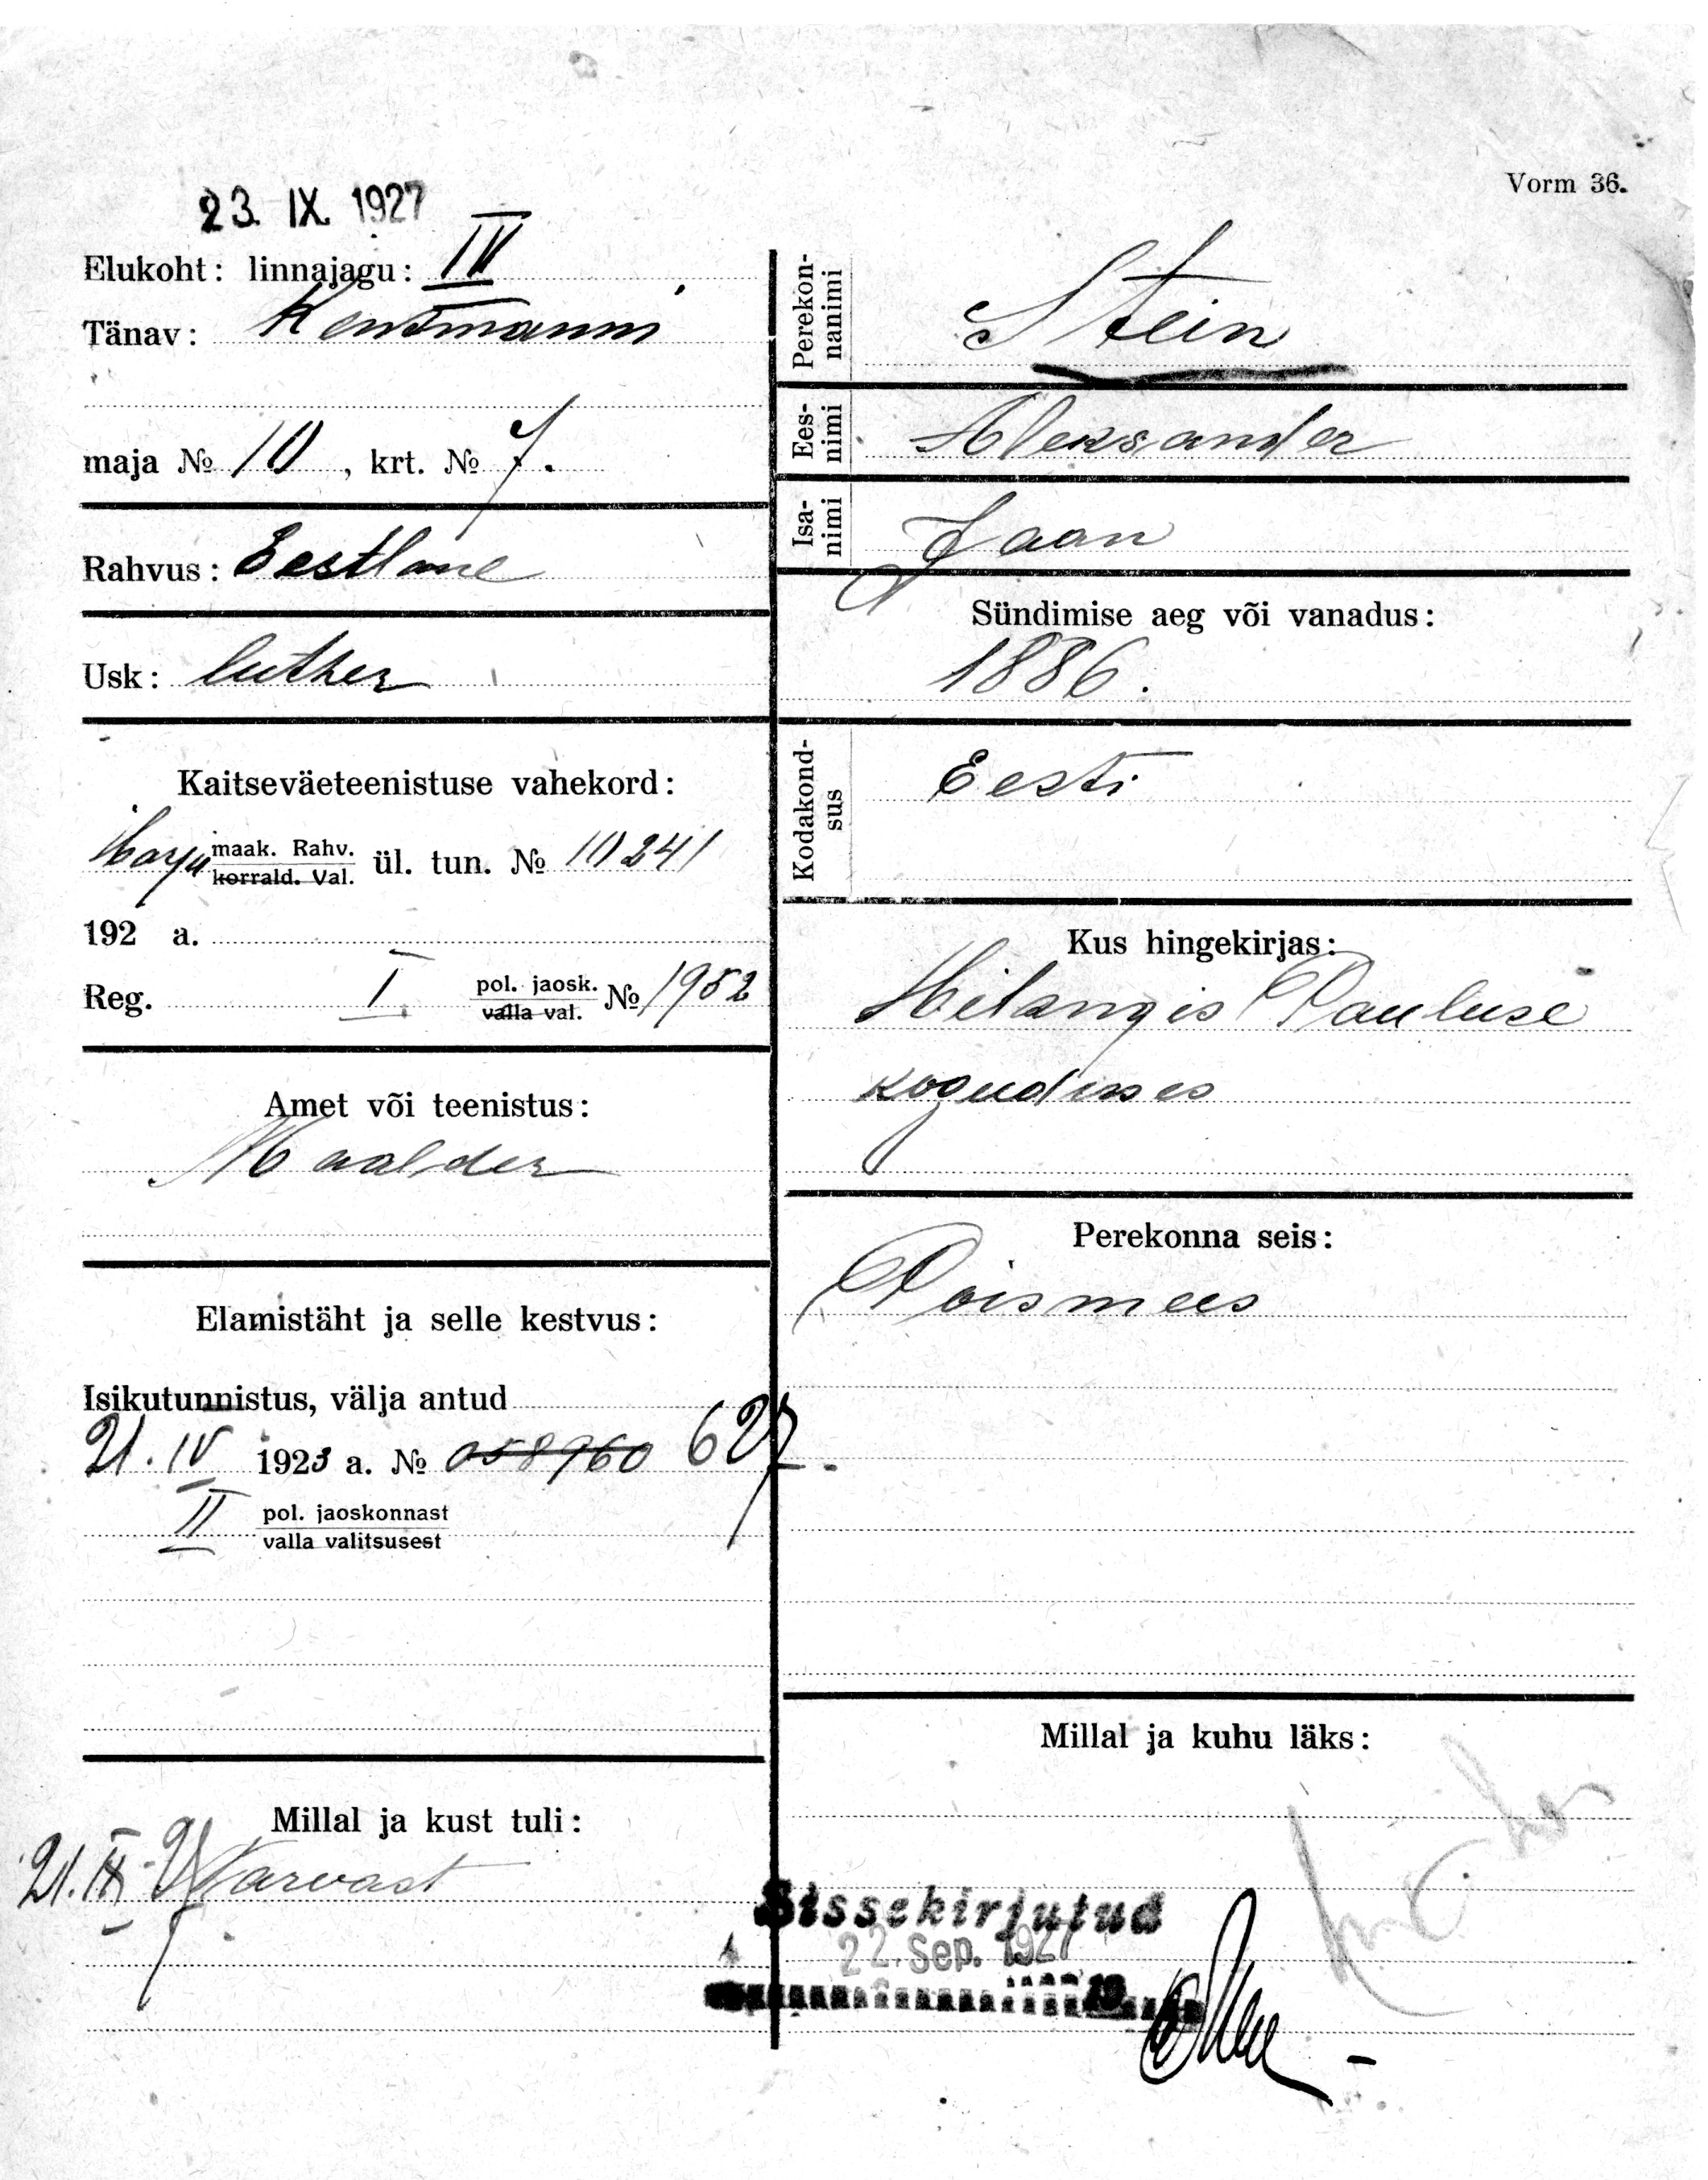 Vorm 36.
23. IX. 1927
Elukoht: linnajagu: IV
Tänav: Kentmanni
maja № 10, krt. № 7.
Rahvus: Eestlane
Usk: luther
Kaitseväeteenistuse vahekord:
Harju maak. Rahv. korrald. Val. ül. tun. № 10241
192 a.
Reg. I pol. jaosk. valla val. № 1952
Amet või teenistus:
Maalder
Elamistäht ja selle kestvus:
Isikutunnistus, välja antud
21. IV 1923 a. № 058960 627.
II pol. jaoskonnast
valla valitsusest
Millal ja kust tuli:
21. IX 27 Narvast
Perekonnanimi Stein
Eesnimi Aleksander
Isanimi Jaan
Sündimise aeg või vanadus:
1886.
Kodakondsus Eesti
Kus hingekirjas:
Pauluse
koguduses
Perekonna seis:
Poismees
Millal ja kuhu läks:
Sissekirjutud
22. Sep. 1927
19